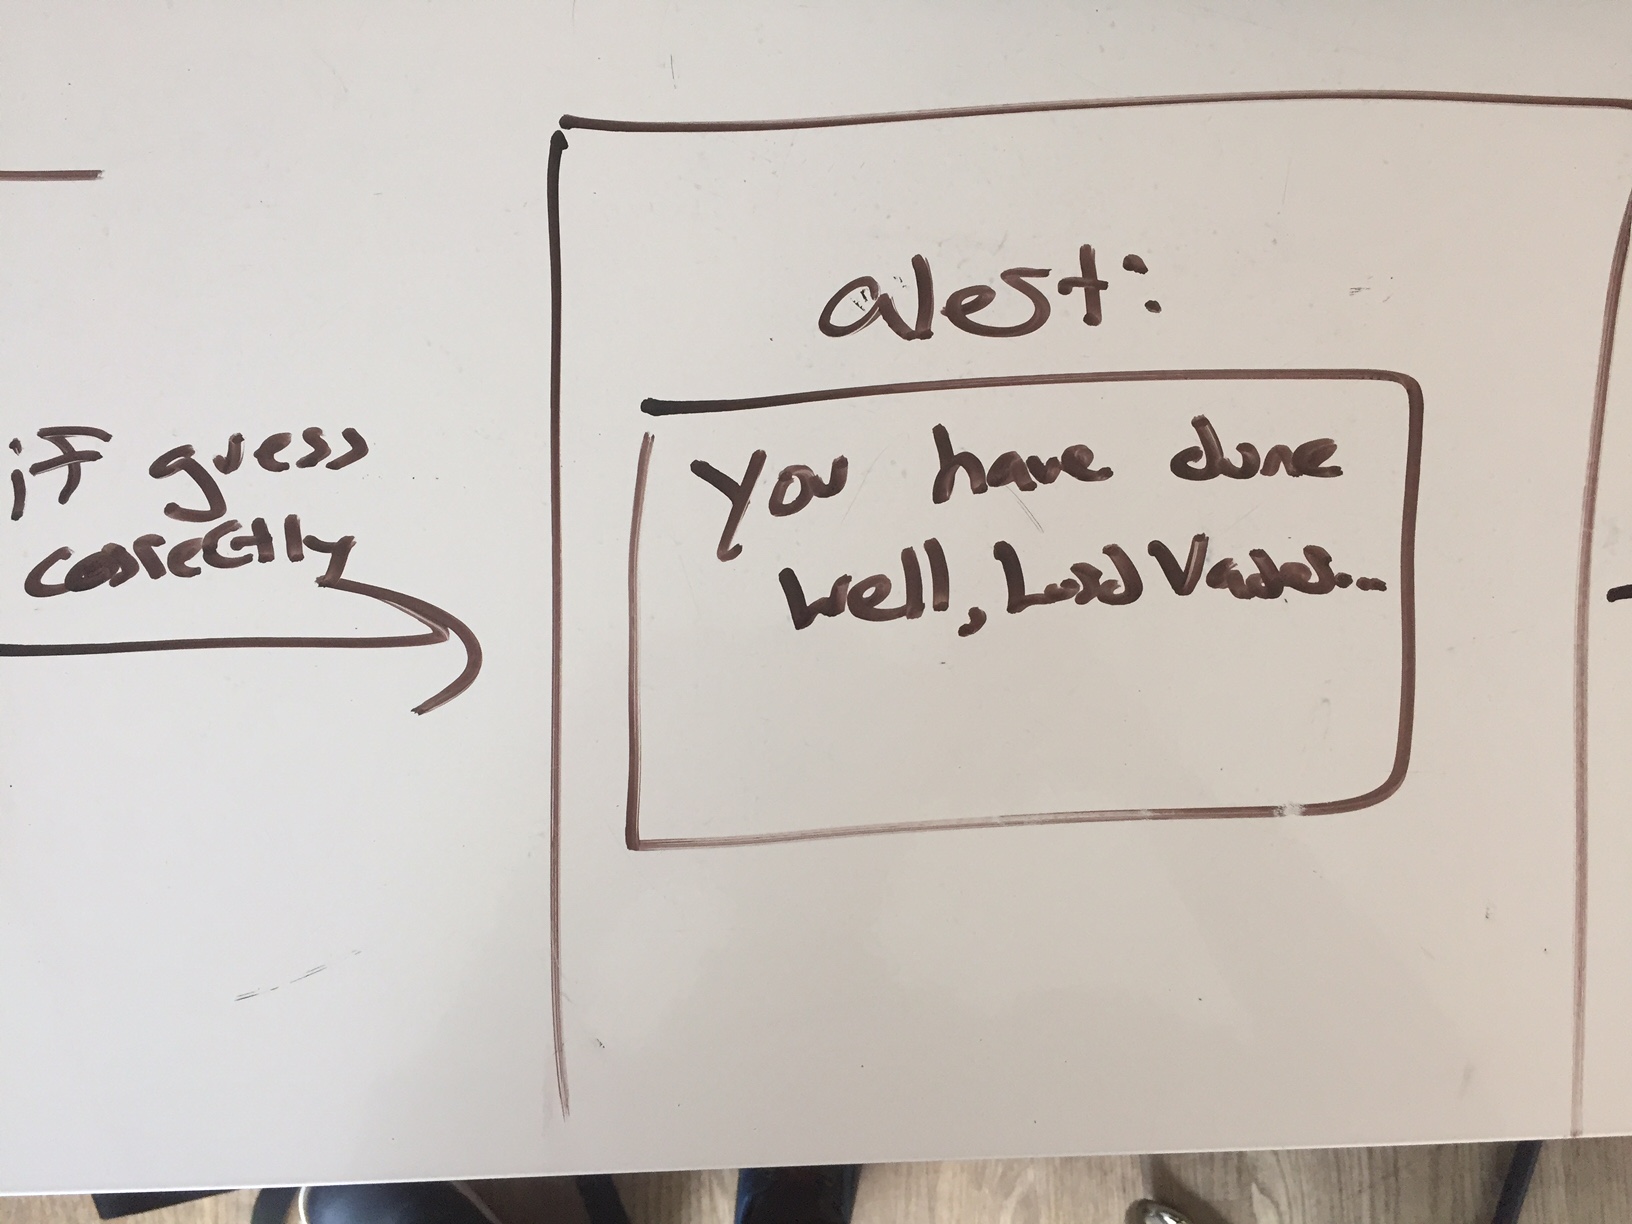 if guess
corectly
alest:
You have done
well, Lord Vader...